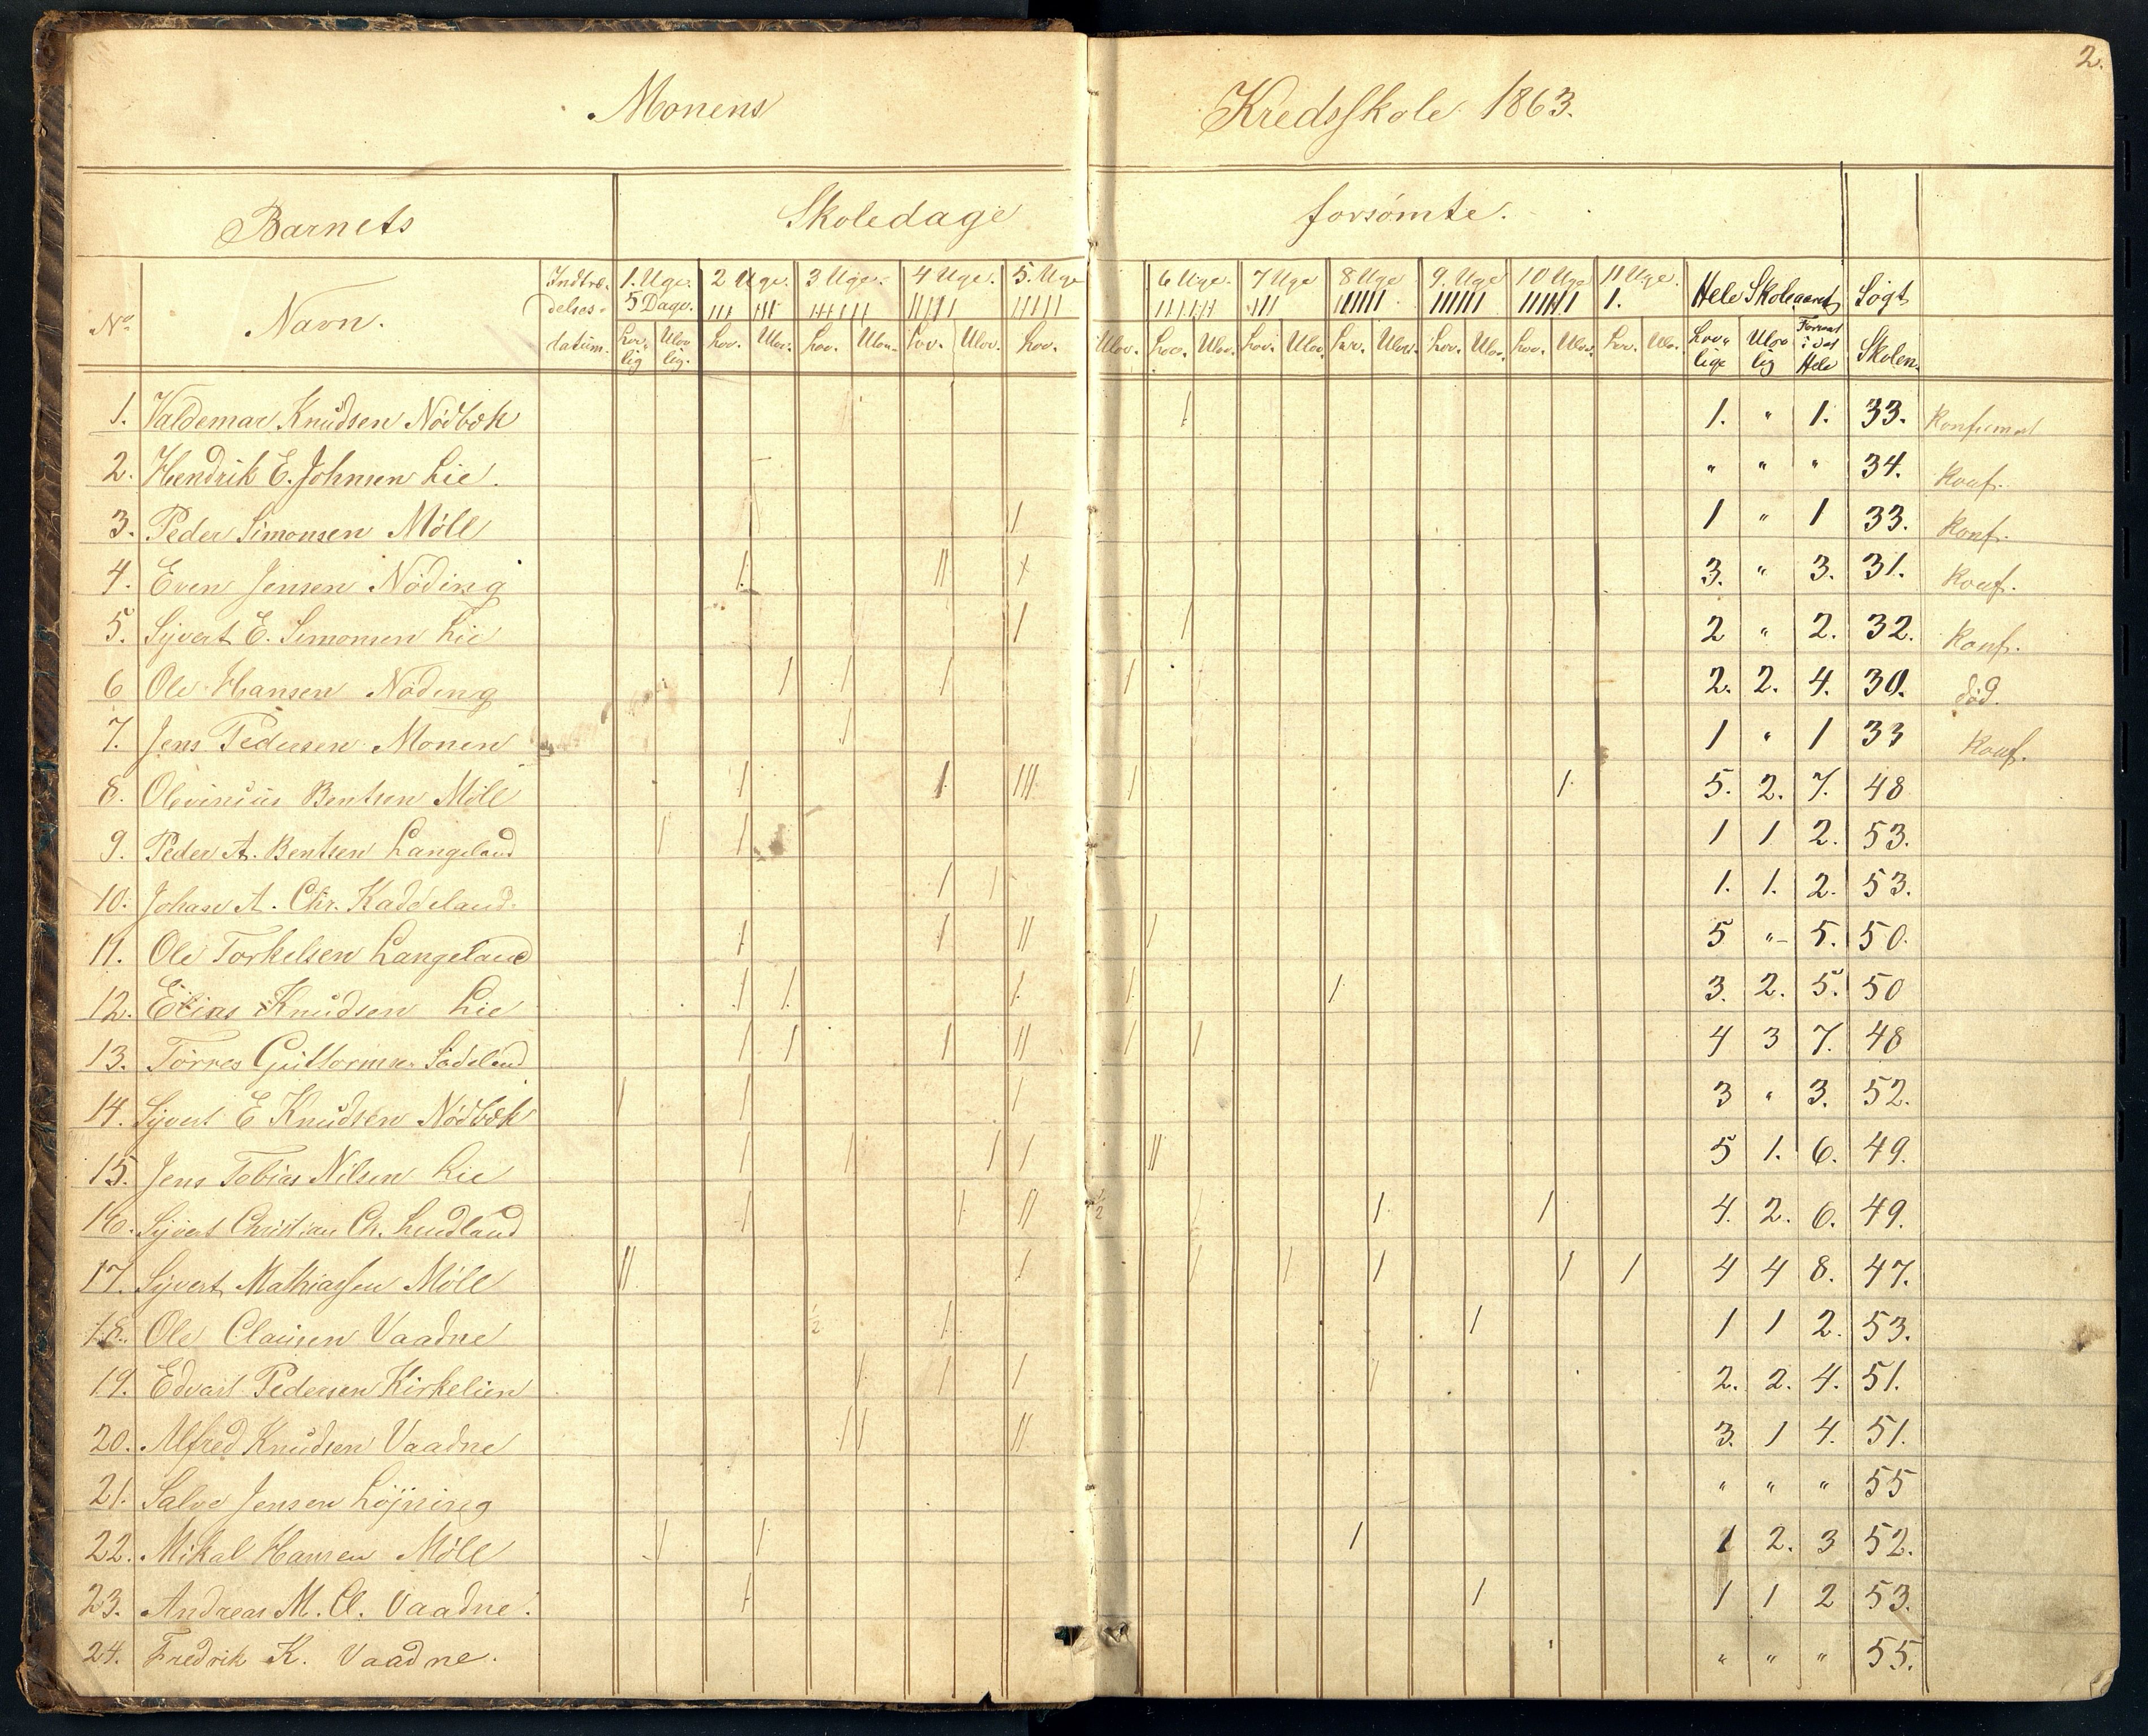 2.
Monens Kredsskole 1863.
Barnets Skoledage forsömte.
No Navn. Indtrædelses-datum. 1. Uge. 5 Dage. 2 Uge. 3 Uge. 4 Uge. 5. Uge 6 Uge. 7 Uge 8 Uge 9. Uge 10 Uge 11 Uge. 1. Hele Skoleaaret Søgt Skolen.
Lovlig Ulovlig. Lov. Ulov. Lov. Ulov. Lov. Ulov. Lov. Ulov. Lov. Ulov. Lov. Ulov. Lov. Ulov. Lov. Ulov. Lov. Ulov. Lov. Ulov. Lovlige Ulovlig i det Hele
1. Valdemar Knudsen Nödbek / 1. " 1. 33. Konfirmert
2. Hendrik E. Johnsen Lie. " " " 34. Konf.
3. Peder Simonsen Möll / 1 " 1 33. Konf.
4. Even Jensen Nöding / // / 3. " 3. 31. Konf.
5. Sjvert E. Simonsen Lie / / 2 " 2. 32. Konf.
6 Ole Hansen Nöding / / / / 2. 2. 4. 30. död.
7. Jens Pedersen Monen / 1 " 1 33 Konf.
8. Olevinius Bentsen Möll / / /// / / 5. 2. 7. 48
9. Peder A. Bentsen Langeland / / 1 1 2. 53.
10. Johan A. Chr. Kaddeland / / 1. 1. 2. 53.
11. Ole Torkelsen Langeland / / // / 5 " 5. 50.
12. Elias Knudsen Lie / / / / / 3. 2. 5. 50
13. Törres Guttormsn. Sadeland / / / // / / 4 3 7. 48
14. Sjvert E Knudsen Nödbek / / / 3 " 3. 52.
15. Jens Tobias Nilsen Lie / / / / // 5 1. 6. 49.
16. Sjvert Christian Ch. Lundland / / // ½ / / / 4. 2. 6. 49.
17. Sjvert Mathiassen Möll // / / / / / / 4 4 8. 47.
18. Ole Clausen Vaadne ½ / / 1 1 2. 53.
19. Edvart Pedersen Kirkelien / / / / 2. 2. 4. 51.
20. Alfred Knudsen Vaadne / / // 3. 1 4. 51.
21. Salve Jensen Löjning " " " 55
22. Mikal Hansen Möll / / / 1 2. 3 52.
23. Andreas M. Cl. Vaadne. / / 1 1 2 53.
24. Fredrik K. Vaadne. " " " 55.